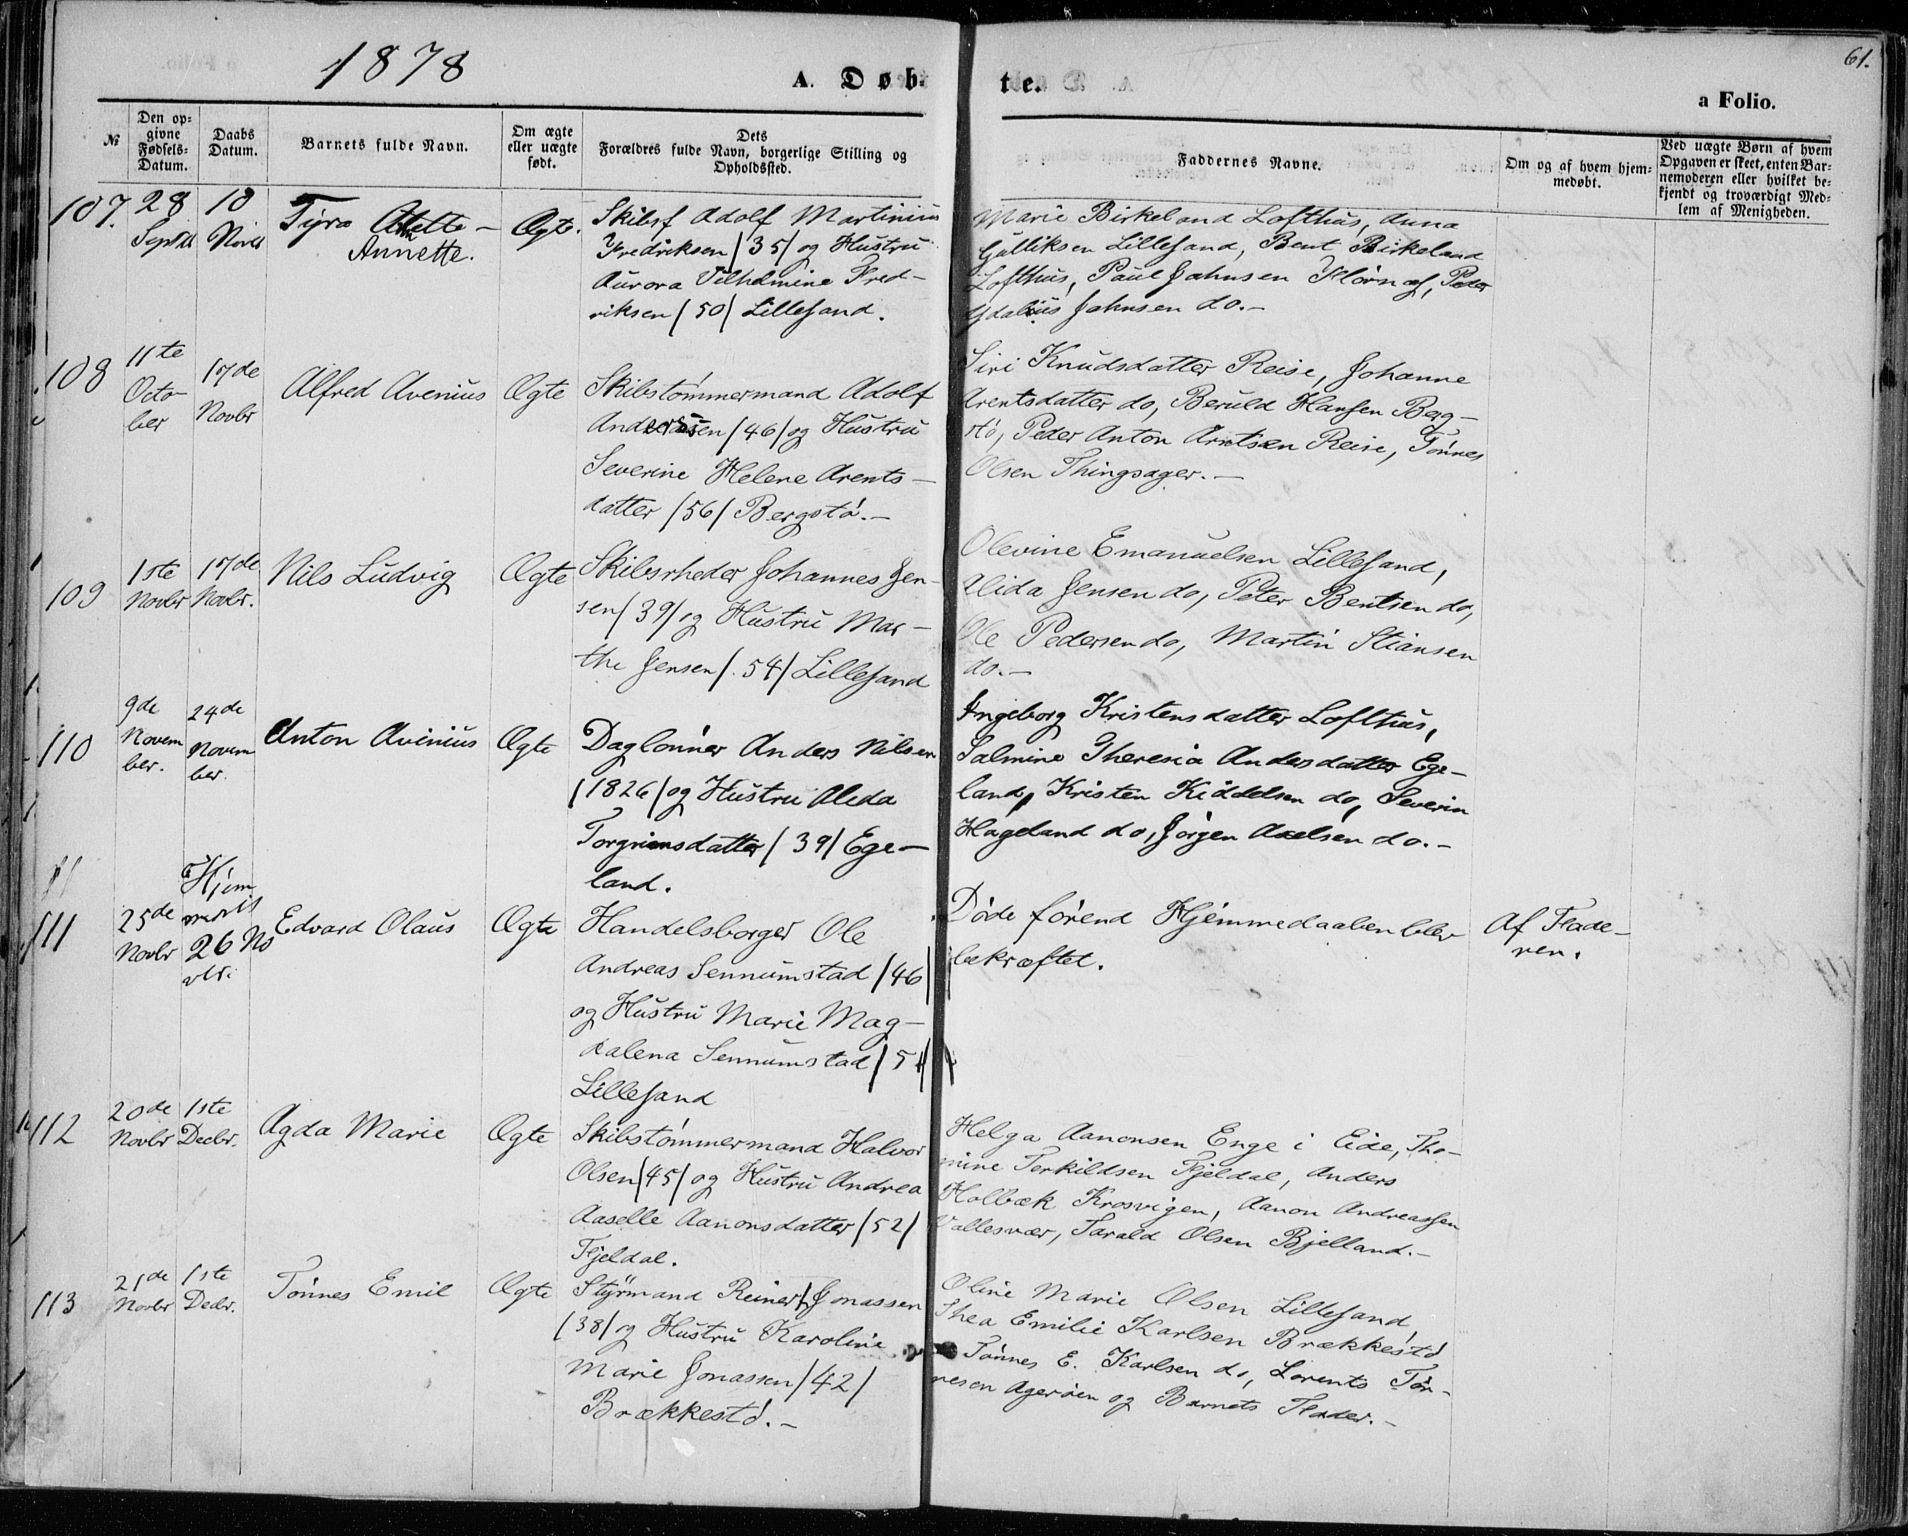 1878
A. Døb-
te.
61.
a Folio.
№
Den op-
givne
Fødsels-
Datum.
Daabs
Datum.
Barnets fulde Navn.
Om ægte
eller uægte
født.
Dets
Forældres fulde Navn, borgerlige Stilling og
Opholdssted.
Faddernes Navne.
Om og af hvem hjem-
medøbt.
Ved uægte Børn af hvem
Opgaven er skeet, enten Bar-
nemoderen eller hvilket be-
kjendt og troværdigt Med-
lem af Menigheden.
107.
28
Septb
10
Novb
Tyra
Annette.
Ægte.
Skibsf Adolf Martinius
Fredriksen /35/ og Hustru
Aurora Vilhelmine Fred-
riksen /50/ Lillesand.
Marie Birkeland Lofthus, Anna
Gulliksen Lillesand, Bent Birkeland
Lofthus, Paul Jahnsen Hornes, Peder
Gdalius Jahnsen do.-
108
11te
Octo-
ber
17de
Novbr
Alfred Avenius
Ægte
Skibstømmermand Adolf
Andersen /46/ og Hustru
Severine Helene Arents-
datter /56/ Bergstø.-
Siri Knudsdatter Reise, Johanne
Arentsdatter do, Beruld Hansen Berg-
stø, Peder Anton Arntsen Reise, Tønnes
Olsen Thingsager.-
109
1ste
Novbr
17de
Novbr.
Nils Ludvig
Ægte
Skibsrheder Johannes Jen-
sen /39/ og Hustru Mar-
the Jensen /54/ Lillesand
Olevine Emanuelsen Lillesand,
Alida Jensen do, Peter Bentsen do,
Ole Pedersen do, Martin Stiansen
do.-
110
9de
Novem
ber.
24de
Novem
ber.
Anton Avinius
Ægte
Daglønner Anders Nilsen
/1826/ og Hustru Aleda
Torgrimsdatter /39/ Ege-
land.
Ingeborg Kristensdatter Lofthus,
Salmine Theresia Andersdatter Ege-
land, Kristen Kiddelsen do, Severin
Hageland do, Jørgen Axelsen do.-
111
25de
Novbr
Hjem
26 No
vbr.
Edvard Olaus
Ægte
Handelsborger Ole
Andreas Sennumstad /46/
og Hustru Marie Mag-
dalena Sennumstad /51/
Lillesand
Døde førend Hjemmedaaben blev
bekræftet.
Af Fade-
ren.
112
20de
Novbr
1ste
Decbr.
Agda Marie
Ægte
Skibstømmermand Halvor
Olsen /45/ og Hustru Andrea
Aaselle Aanonsdatter /52/
Fjeldal.
Helga Aanonsen Enge i Eide, Tho-
mine Terkildsen Fjeldal, Anders
Holbæk Krosvigen, Aanon Andreassen
Vallesvær, Tarald Olsen Bjelland.-
113
21de
Novbr
1ste
Decbr.
Tønnes Emil
Ægte
Styrmand Reinert Jonassen
/38/ og Hustru Karoline
Marie Jonassen /42/
Brækkestø.-
Oline Marie Olsen Lillesand,
Thea Emilie Karlsen Brækkestø
Tønnes E. Karlsen do, Lorents Tøn-
nesen Agerøen og Barnets Fader.-